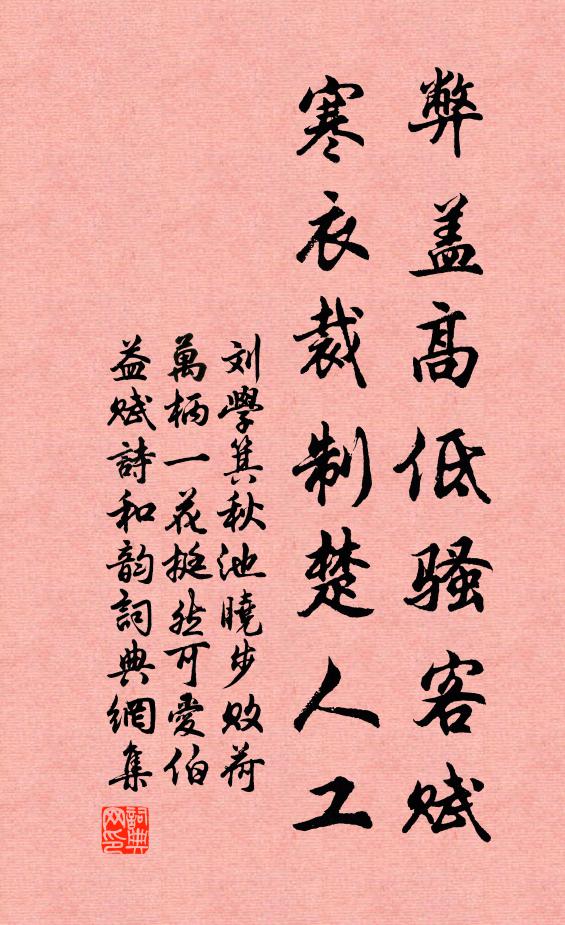 弊盖高低骚客赋
寒衣裁制楚人工
刘學箕秋池曉步败荷
萬柄一花挺然可愛伯
益赋詩和韵詞典網集
詞典网印